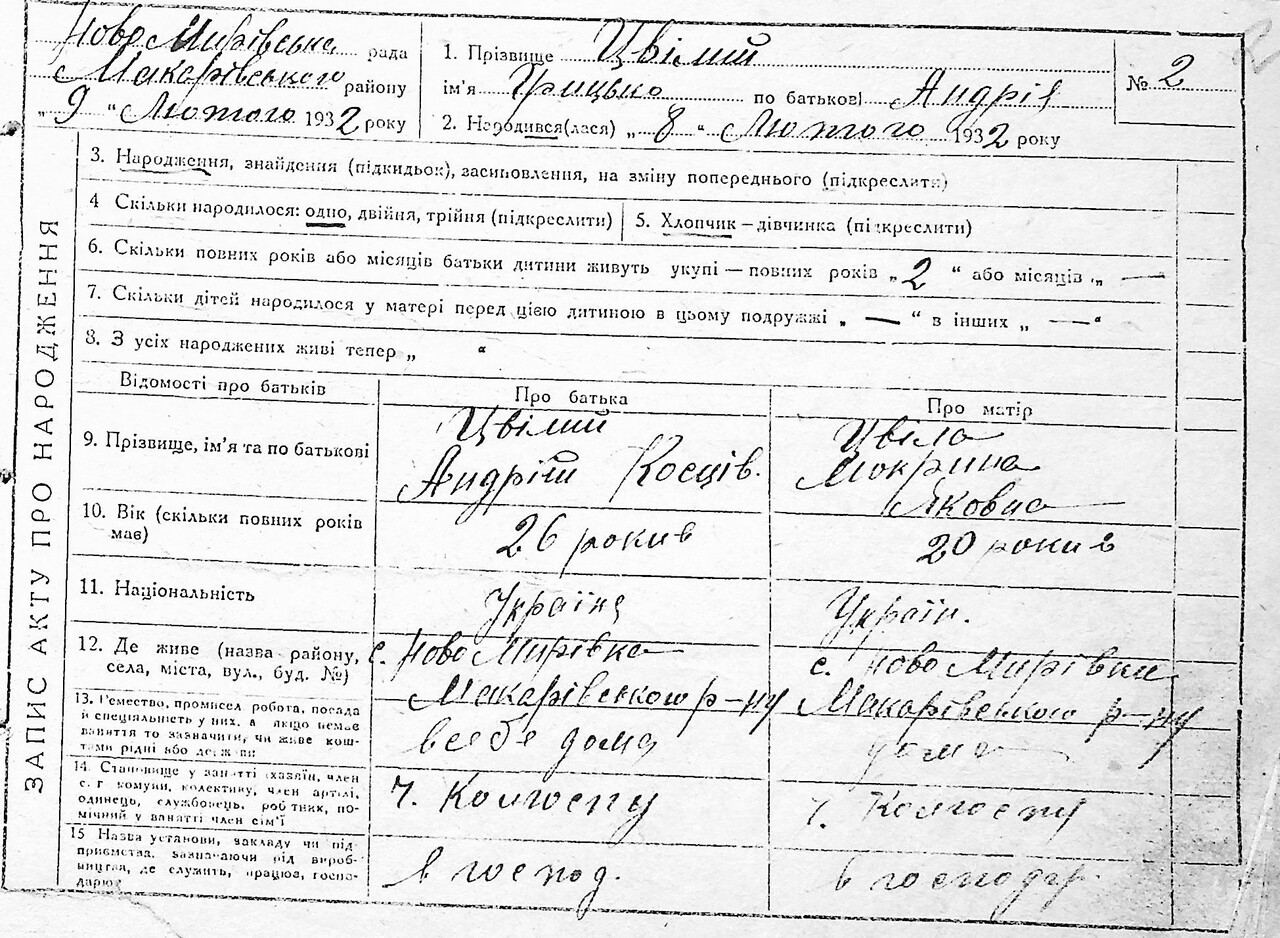 Ново Мирівська рада
Макарівського району
„ 9 “ Лютого 1932 року
1. Прізвище Цвілий
ім'я Грицько по батькові Андрів
2. Народився(лася) „ 8 “ Лютого 1932 року
№ 2
ЗАПИС АКТУ ПРО НАРОДЖЕННЯ
3. Народження, знайдення (підкидьок), засиновлення, на зміну попереднього (підкреслити)
4 Скільки народилося: одно, двійня, трійня (підкреслити)
5. Хлопчик – дівчинка (підкреслити)
6. Скільки повних років або місяців батьки дитини живуть укупі — повних років „ 2 “ або місяців „ —
7. Скільки дітей народилося у матері перед цією дитиною в цьому подружжі „ — “ в інших „ — “
8. З усіх народжених живі тепер „ “
Відомості про батьків
Про батька
Про матір
9. Прізвище, ім'я та по батькові
Цвілий
Андрій Косців.
Цвіла
Мокрина
Яковна
10. Вік (скільки повних років
має)
26 роки в
20 роки в
11. Національність
Україне
Україн.
12. Де живе (назва району,
села, міста, вул., буд. №)
с. Ново Мирівка
Макарівського р-ну
с. Ново Мирівки
Макарівського р-ну
13. Ремество, промисел робота, посада
й спеціальність у них, а якщо немає
заняття то зазначити, чи живе кош-
тами рідні або держави
в себе дома
дома
14. Становище у занятті (хазяїн, член
с. г комуни, колективу, член артілі,
одинець, службовець, робітник, по-
мічний у занятті член сім'ї
Ч. Колгоспу
Ч. Колгоспу
15 Назва установи, закладу чи під-
приємства, зазначаючи рід вироб-
ництва, де служить, працює, госпо-
дарює
в господ.
в господар.